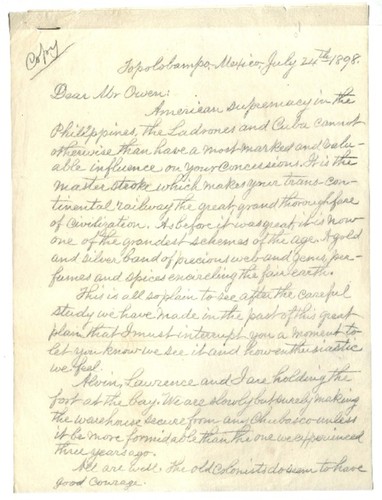 Copy
Topolobampo, Mexico, July 24th 1898.
Dear Mr Owen:
American supremacy in the
Philippines, the Ladrones and Cuba cannot
otherwise than have a most marked and valu-
able influence on your concessions. It is the
master stroke which makes your trans-con-
tinental railway the great grand thoroughfare
of civilization. As before it was great it is now
one of the grandest schemes of the age. A gold
and silver band of precious web and gems, per-
fumes and spices encircling the fair earth.
This is all so plain to see after the careful
study we have made in the past of this great
plan that I must interrupt you a moment to
let you know we see it and how enthusiastic
we feel.
Alvin, Lawrence and I are holding the
fort at the bay. We are slowly but surely making
the warehouse secure from any Chubasco unless
it be more formidable than the one we experienced
three years ago.
All are well. The old colonists do seem to have
good courage.